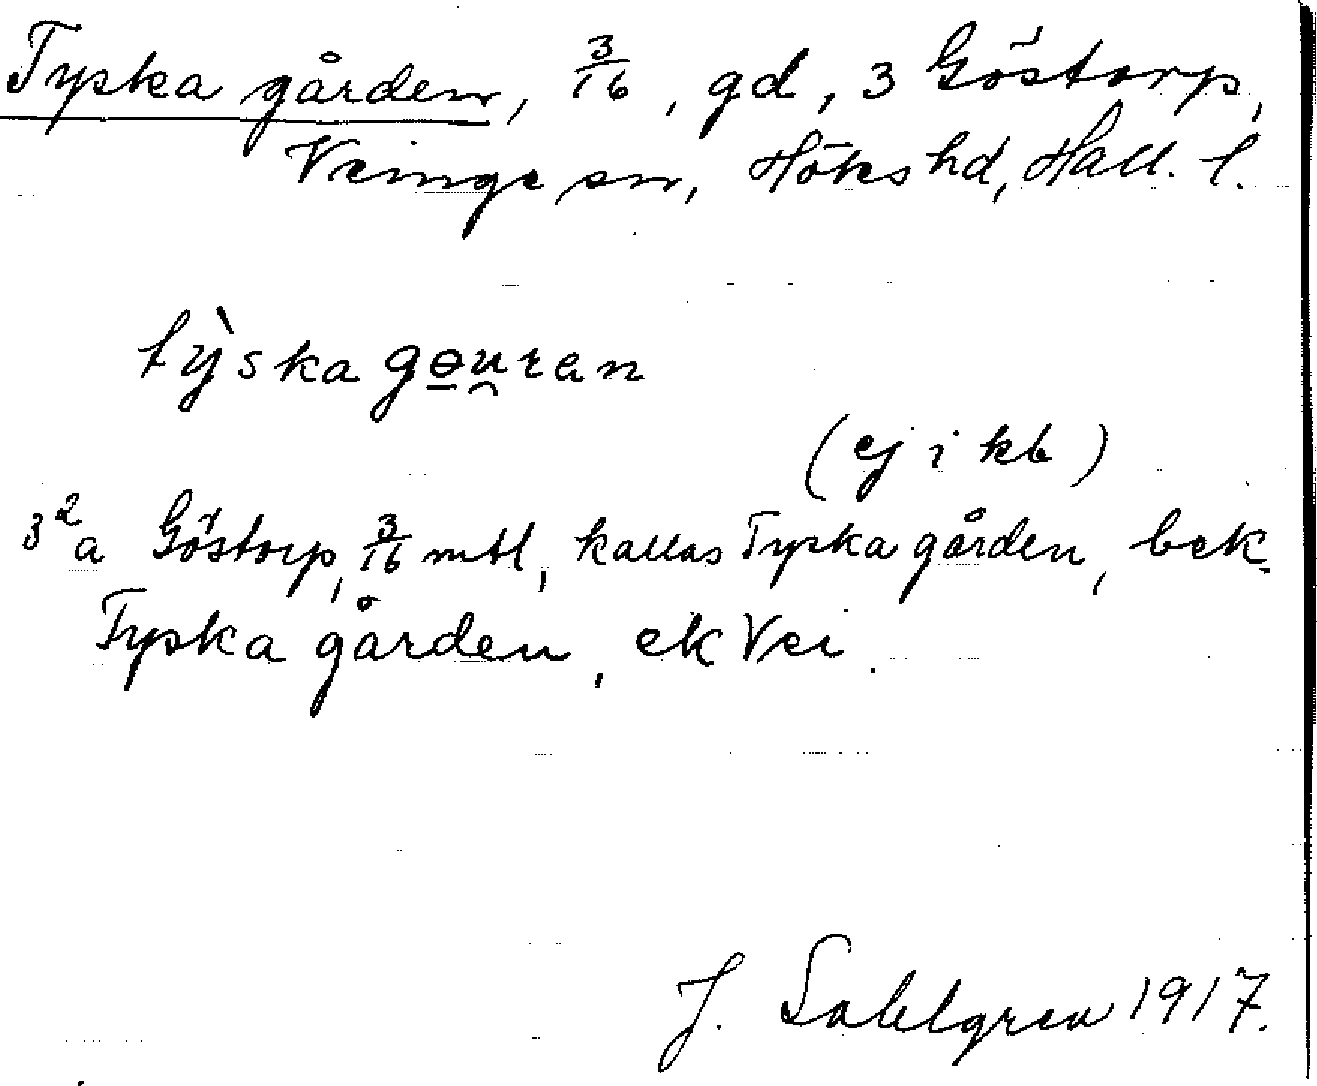 Tyska gården, 3/16, gd, 3 Göstorp,
Veinge sn, Höks hd, Hall. l.
tỳska gɵu̯ran
(ej i kb)
3²a Göstorp, 3/16 mtl, kallas Tyska gården, bek.
Tyska gården, ek Vei.
J. Sahlgren 1917.